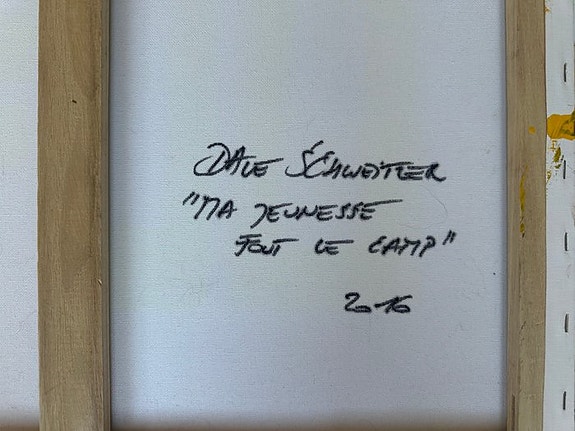 DAVE SCHWEITZER
"MA JEUNESSE
FOUT LE CAMP"
2016